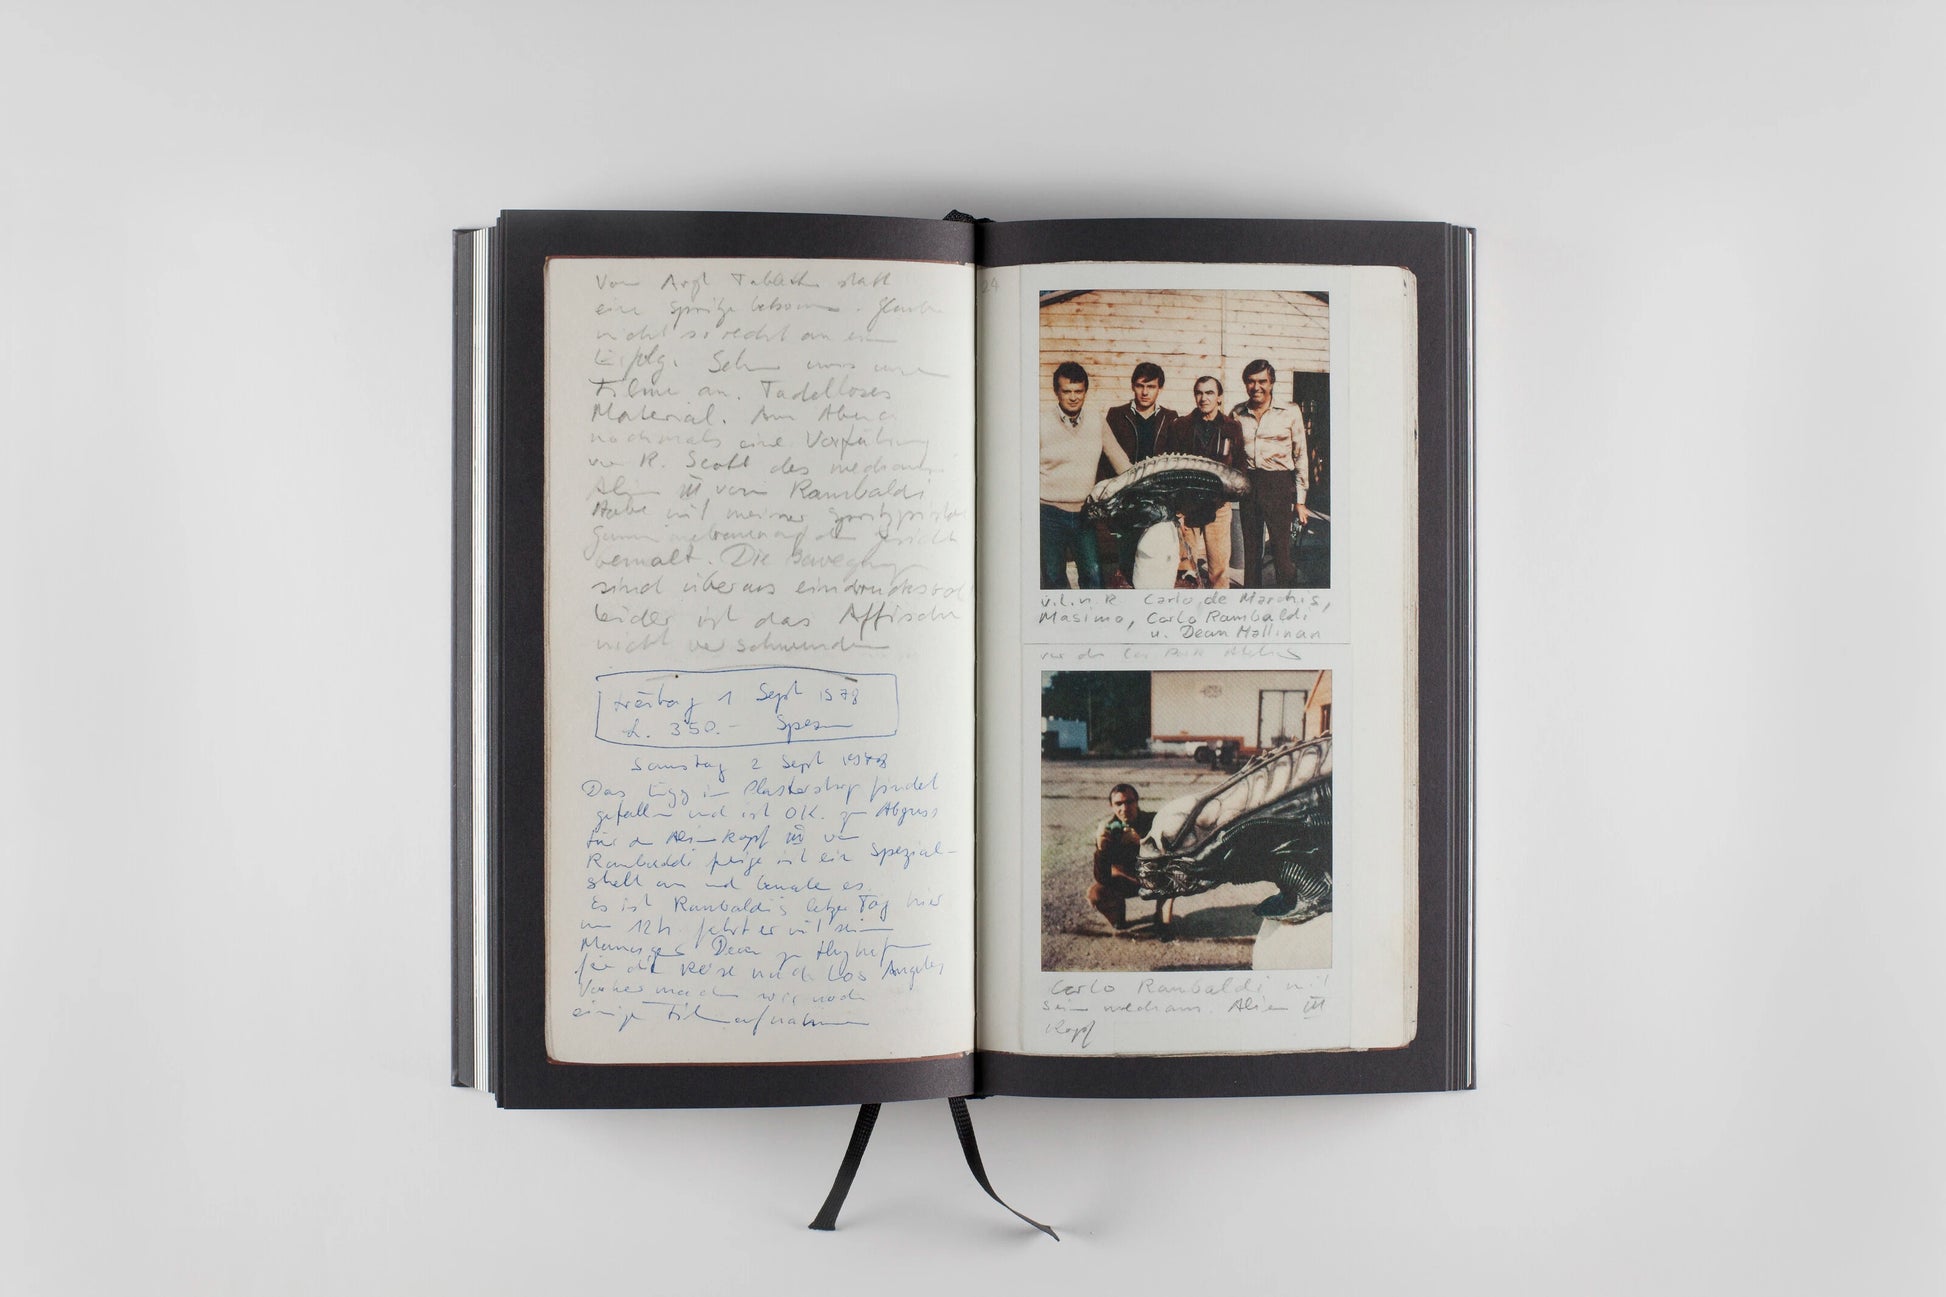 Vom Arzt Tabletten statt
eine Spritze bekommen. Glaube
nicht so recht an ein
Erfolg. Sehn uns
Filme an. Tadelloses
Material. Am Abend
nochmals eine Vorführung
von R. Scott des mechanisch
Alien III von Rambaldi
Habe mit meiner Spritzpistole
Gesicht
bemalt. Die Bewegungen
sind überaus eindrucksvoll
leider ist das Affische
nicht verschwunden
Freitag 1 Sept 1978
L. 350.- Spesen
Samstag 2 Sept 1978
Das Egg im Plastershop findet
gefallen und ist OK. zum Abguss
für den Alienkopf III von
Rambaldi ich ein Spezial-
und bemale es.
Es ist Rambaldis letzter Tag hier
um 12h. fährt er mit seinem
Manager Dean zum Flughafen
für die Reise nach Los Angeles
Vorher machen wir noch
einige Filmaufnahmen
24
v.l.n.R. Carlo de Marchis,
Masimo, Carlo Rambaldi
u. Dean Hallinan
vor dem
Carlo Rambaldi mit
seinem mechan. Alien III
Kopf